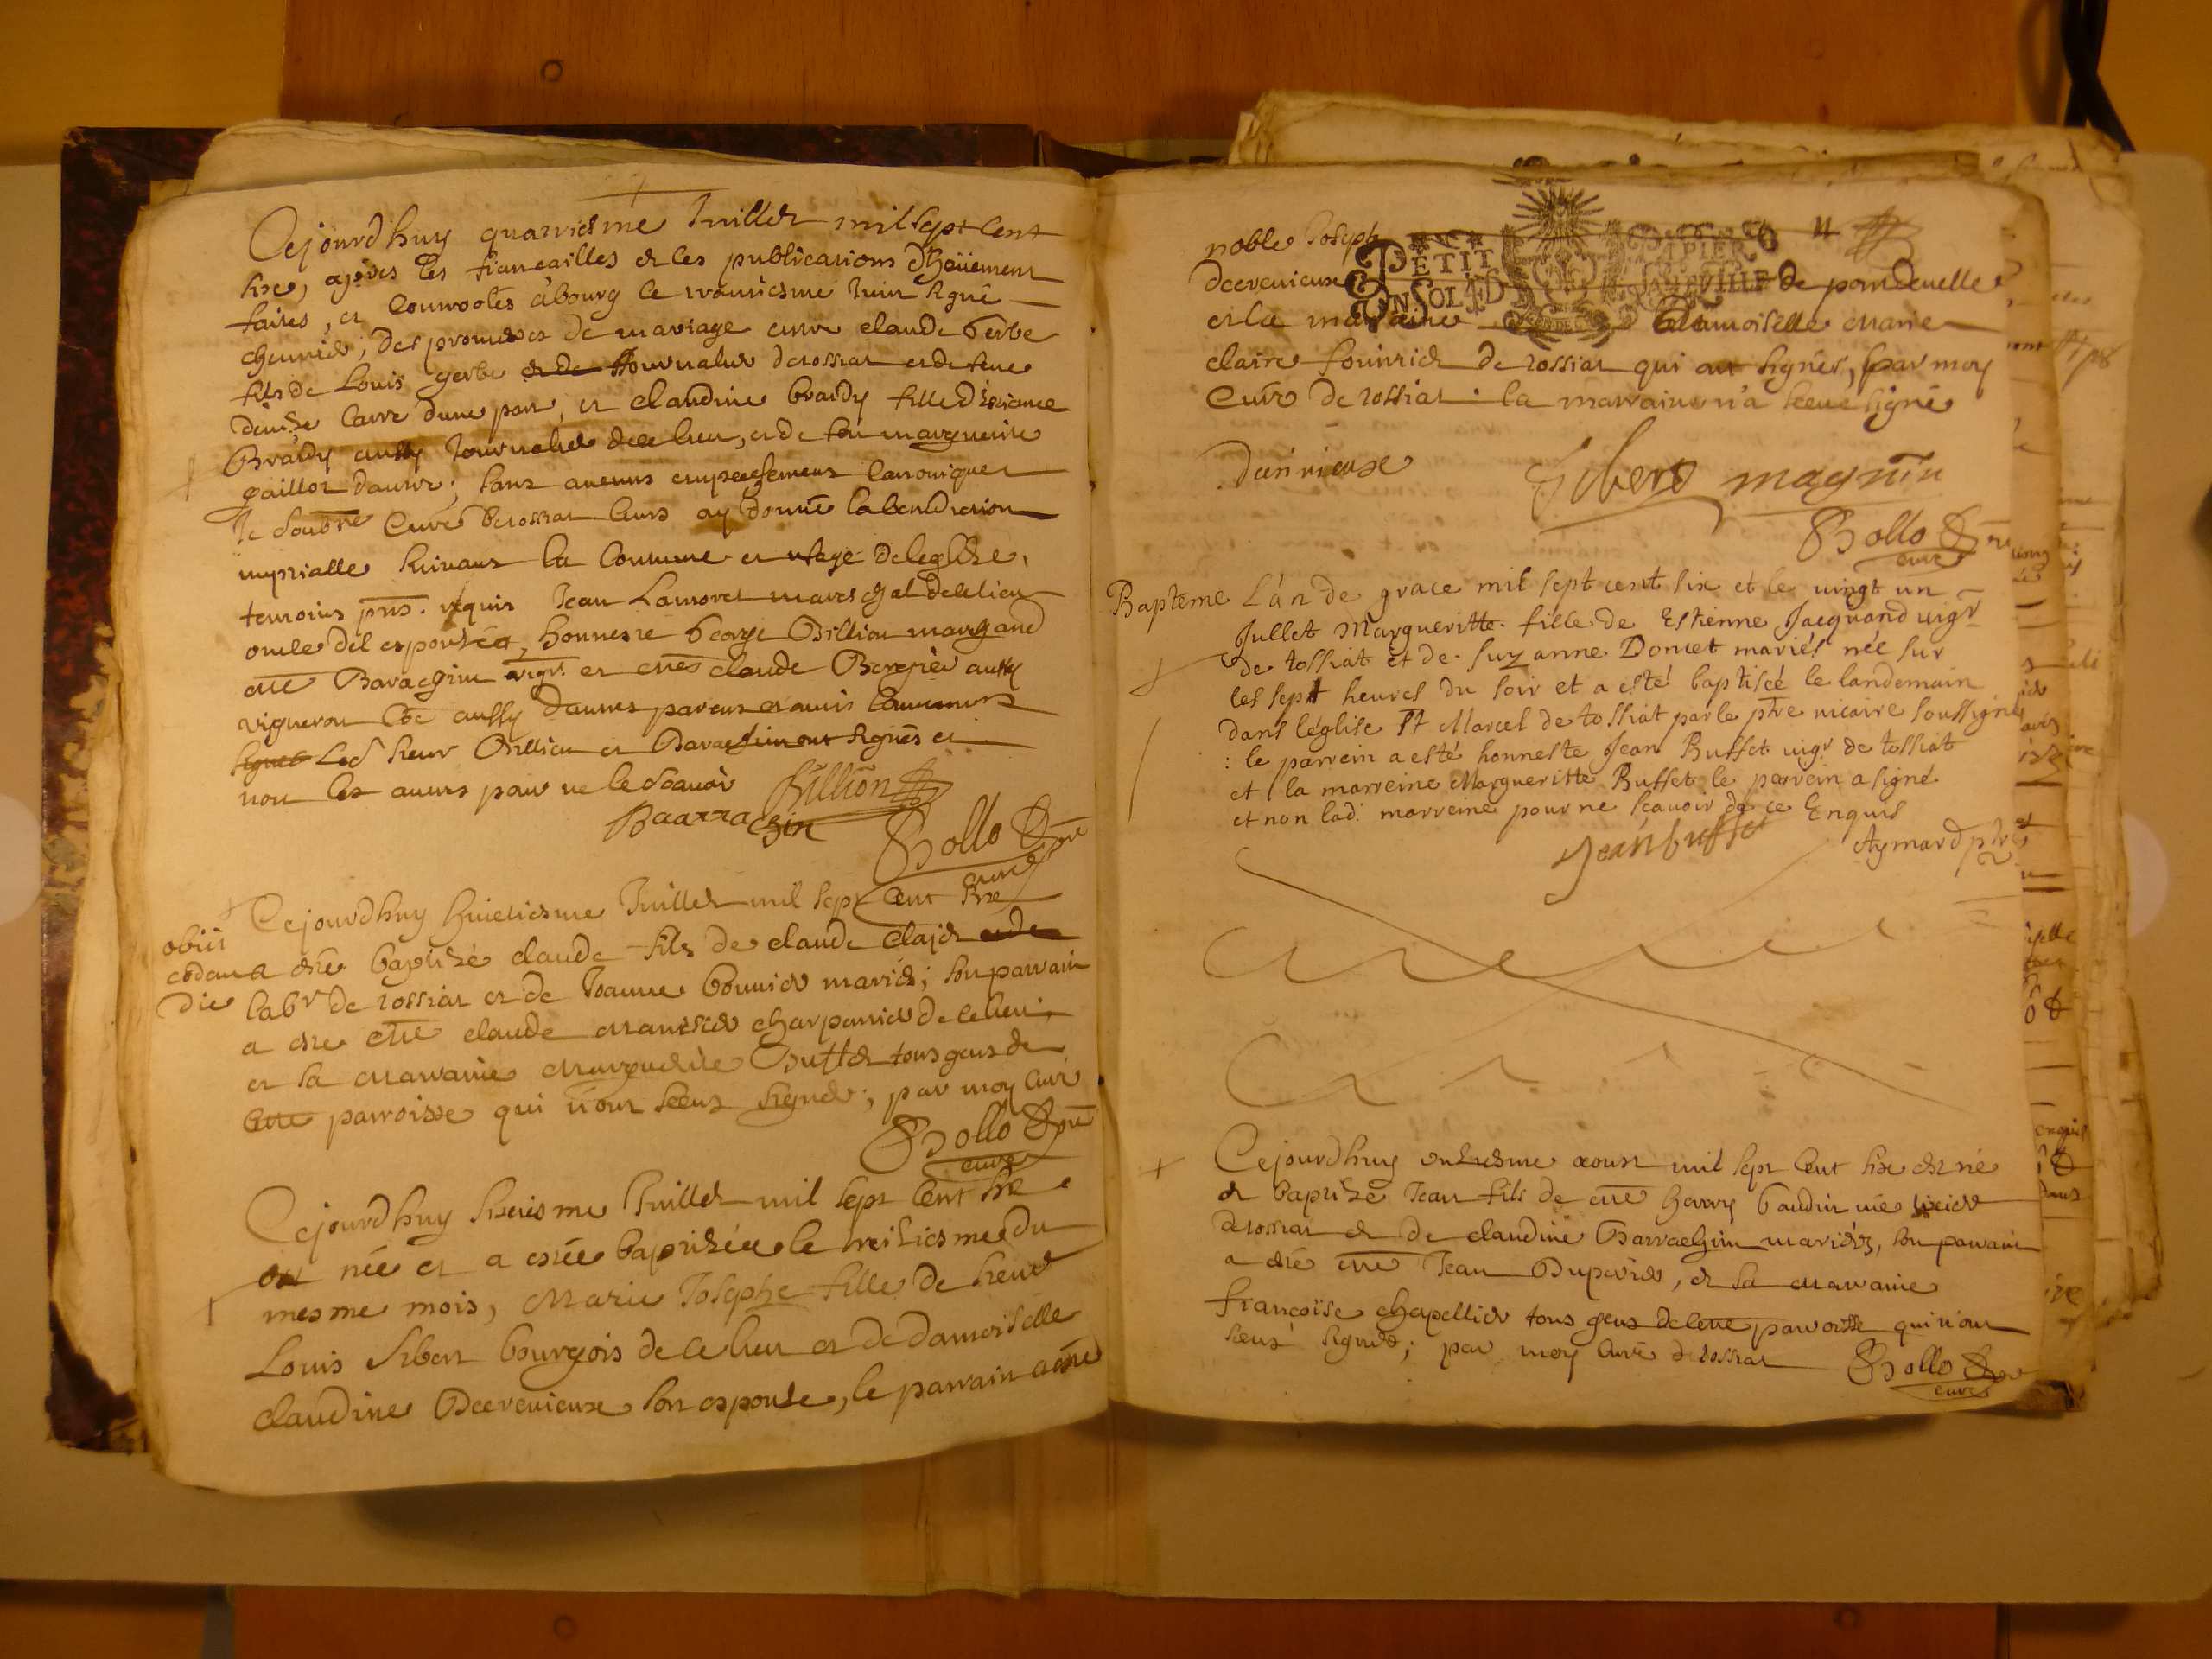 Cejourdhuy quatriesme Juillet mil sept cent
six, après les fiancailles et les publications dheüement
faites, et controolés à bourg le troisiesme Juin signé
chesnier, des promesses de mariage entre claude Gerbe
fils de Louis gerbe et de Journalier de tossiat et de feue
denise carre dune part, et claudine brardy fille d'estienne
Brardy aussy Journalier de ce lieu, et de feu marguerite
gaillot dautre; sans aucuns empeschemens canoniques
Je soubné Curé de tossiat leurs ay donné la benediction
nuptialle suivant la coutume et usage de leglise,
temoins pns. requis Jean Lamoret mareschal de ce lieu
oncle del espousée, honneste George Billion marchand
me Barachin vigr. et me claude Bergier aussy
vigneron aussy dautres parens et amis communs
signes Led sieur Billion et Barachin ont signés et
non les autres pour ne le scavoir
Billion
Baarrachin
Bollo Ptre
curé
Cejourdhuy huictiesme Juillet mil sept cent six
obiit
eodem
die
a esté baptisé claude fils de claude clajet et de
labr de tossiat et de Joanne bonnier mariés; son parrain
a esté me claude charpentier de ce lieu
et la marraine marguerite Buffet tous gens de
cette parroisse qui n'ont sceuz signer; par moy curé
Bollo Ptre
curé
Cejourdhuy sixiesme Juillet mil sept cent six
est née et a estée baptisée le treiziesme du
mesme mois, Marie Josephe fille de sieur
Louis Sibert bourgois de ce lieu et de damoiselle
claudine Decrenieuse son espouse, le parrain a esté
noble Joseph
decrenieuse
PETIT PAPIER
UN SOL 4 D
de pondeuelle
et la marraine damoiselle marie
claire fournier de tossiat qui ont signés, par moy
Curé de tossiat. la marraine n'a sceue signé
Sibert magnin
Bollo Ptre
curé
Bapteme L'an de grace mil sept cent six et le vingt un
Jullet Margueritte fille de Estienne Jacquand vigr
de tossiat et de Suzanne Domet mariés née sur
les sept heures du soir et a esté baptiseé le landemain
dans léglise St Marcel de tossiat par le ptre vicaire soussigné
: le parrein a esté honneste Jean Buffet vigr de tossiat
et la marreine Margueritte Buffet le parrein a signé
et non lad. marreine pour ne scavoir de ce Enquis
Jean buffet
Aymard ptre
Cejourdhuy onziesme aoust mil sept cent six est né
et baptizé Jean fils de me baudin
de tossiat et de claudine Barrachin mariés, son parrain
a esté me Jean Duperier, et la marraine
françoise chapellier tous gens de cette parroisse qui n'ont
sceuz signer; par moy curé de tossiat
Bollo Ptre
curé